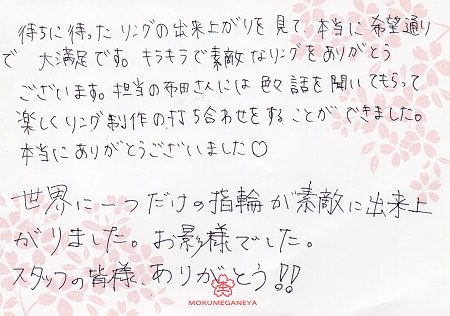 待ちに待ったリングの出来上がりを見て、本当に希望通り
で 大満足です。キラキラで素敵なリングをありがとう
ございます。担当の布田さんには色々話を聞いてもらって
楽しくリング制作の打ち合わせをすることができました。
本当にありがとうございました♡
世界に一つだけの指輪が素敵に出来上
がりました。お影様でした。
スタッフの皆様、ありがとう!!
MOKUMEGANEYA